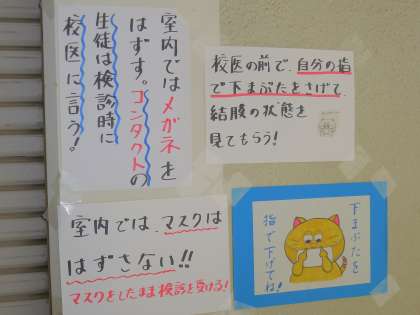 室内ではメガネを
はずす。コンタクトの
生徒は検診時に
校医に言う!
校医の前で、自分の指
で下まぶたをさげて
結膜の状態を
見てもらう!
室内では、マスクは
はずさない!!
マスクをしたまま検診を受ける!
下まぶたを
指で下げてね!